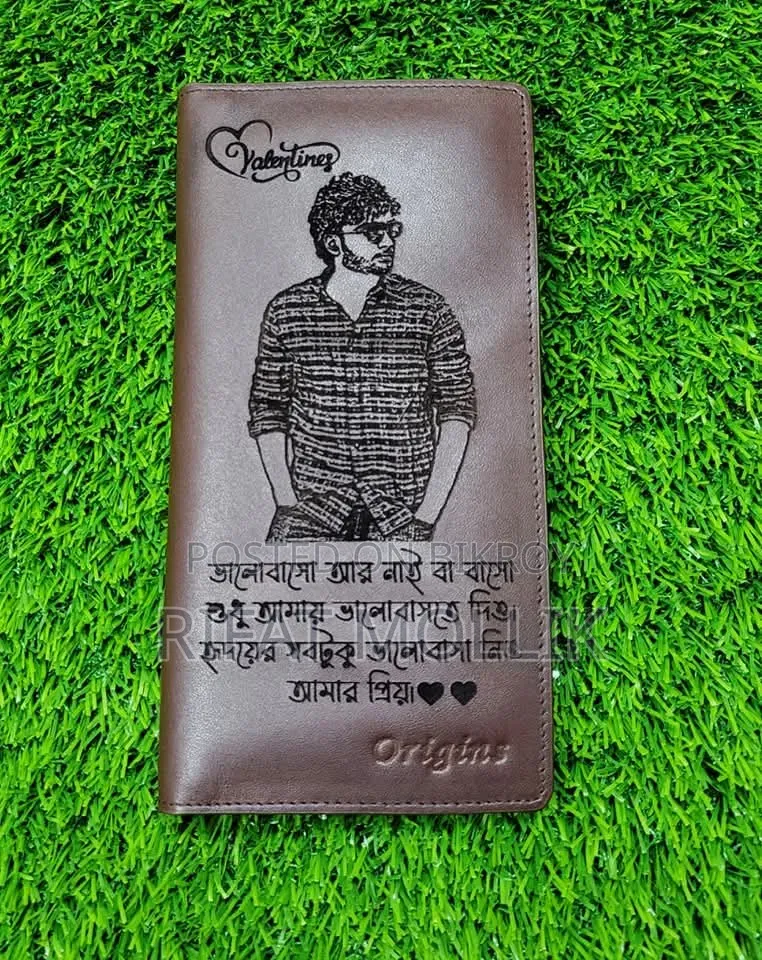 Valentines
POSTED ON BIKROY
ভালোবাসো আর নাই বা বাসো
শুধু আমায় ভালোবাসতে দিও
RIFAT MOLLIK
হৃদয়ের সবটুকু ভালোবাসা
আমার প্রিয়।🖤🖤
Origins